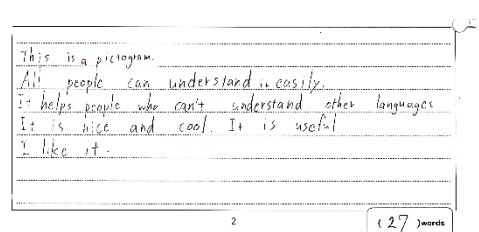 This is a pictogram.
All people can understand it easily.
It helps people who can't understand other languages
It is nice and cool. It is useful
I like it.
2
( 27 ) words